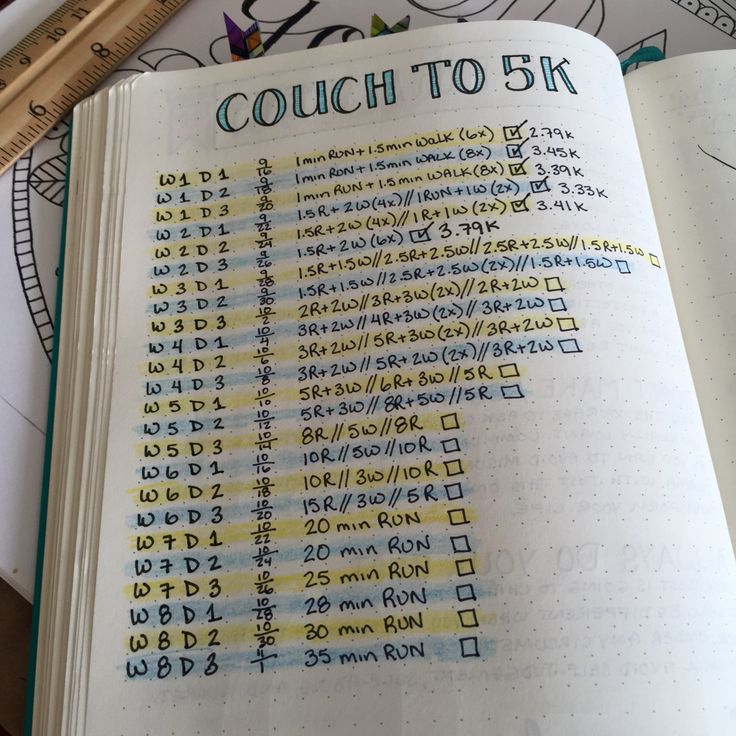 COUCH TO 5K
W1 D1 9/16 1min RUN + 1.5min WALK (6x) ☑ 2.79K
W1 D2 9/18 1min RUN + 1.5min WALK (8x) ☑ 3.45K
W1 D3 9/20 1min RUN + 1.5min WALK (8x) ☑ 3.39K
W2 D1 9/22 1.5R + 2W (4x) // 1RUN + 1W (2x) ☑ 3.33K
W2 D2 9/24 1.5R + 2W (4x) // 1R + 1W (2x) ☑ 3.41K
W2 D3 9/26 1.5R + 2W (6x) ☑ 3.79K
W3 D1 9/28 1.5R + 1.5W // 2.5R + 2.5W // 2.5R + 2.5W // 1.5R + 1.5W ☐
W3 D2 9/30 1.5R + 1.5W // 2.5R + 2.5W (2x) // 1.5R + 1.5W ☐
W3 D3 10/2 2R + 2W // 3R + 3W (2x) // 2R + 2W ☐
W4 D1 10/4 3R + 2W // 4R + 3W (2x) // 3R + 2W ☐
W4 D2 10/6 3R + 2W // 5R + 3W (2x) // 3R + 2W ☐
W4 D3 10/8 3R + 2W // 5R + 2W (2x) // 3R + 2W ☐
W5 D1 10/10 5R + 3W // 6R + 3W // 5R ☐
W5 D2 10/12 5R + 3W // 8R + 5W // 5R ☐
W5 D3 10/14 8R // 5W // 8R ☐
W6 D1 10/16 10R // 5W // 10R ☐
W6 D2 10/18 10R // 3W // 10R ☐
W6 D3 10/20 15R // 3W // 5R ☐
W7 D1 10/22 20 min RUN ☐
W7 D2 10/24 20 min RUN ☐
W7 D3 10/26 25 min RUN ☐
W8 D1 10/28 28 min RUN ☐
W8 D2 10/30 30 min RUN ☐
W8 D3 11/1 35 min RUN ☐